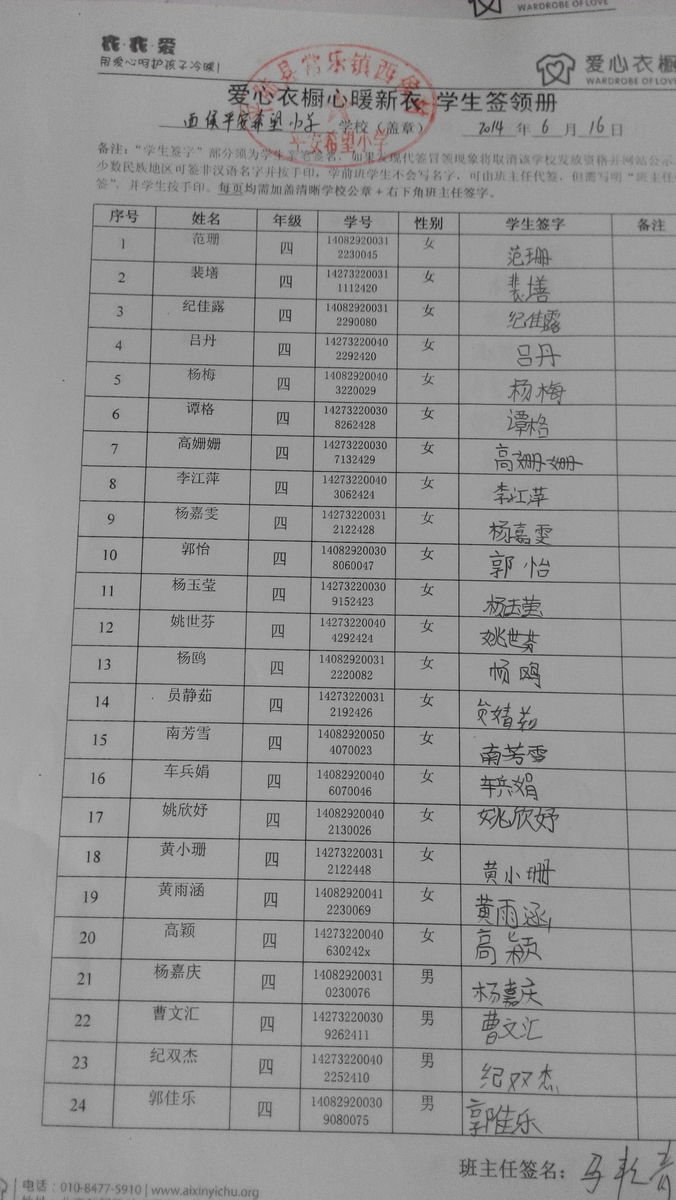 WARDROBE OF LOVE
衣·衣·爱
用爱心呵护孩子冷暖!
爱心衣橱
WARDROBE OF LOVE
爱心衣橱心暖新衣 学生签领册
西侯平安希望小学 学校（盖章） 2014 年 6 月 16 日
县常乐镇西侯
平安希望小学
备注："学生签字"部分须为学生亲笔签名，如果发现代签冒领现象将取消该学校发放资格并网站公示
少数民族地区可签非汉语名字并按手印，学前班学生不会写名字，可由班主任代签，但需写明"班主任
签"，并学生按手印。每页均需加盖清晰学校公章+右下角班主任签字。
序号 姓名 年级 学号 性别 学生签字 备注
1 范珊 四 140829200312230045 女 范珊
2 裴墡 四 142732200311112420 女 裴墡
3 纪佳露 四 140829200312290080 女 纪佳露
4 吕丹 四 142732200402292420 女 吕丹
5 杨梅 四 140829200403220029 女 杨梅
6 谭格 四 142732200308262428 女 谭格
7 高姗姗 四 142732200307132429 女 高姗姗
8 李江萍 四 142732200403062424 女 李江萍
9 杨嘉雯 四 142732200312122428 女 杨嘉雯
10 郭怡 四 140829200308060047 女 郭怡
11 杨玉莹 四 142732200309152423 女 杨玉莹
12 姚世芬 四 142732200404292424 女 姚世芬
13 杨鸥 四 140829200312220082 女 杨鸥
14 员静茹 四 142732200312192426 女 员婧茹
15 南芳雪 四 140829200504070023 女 南芳雪
16 车兵娟 四 140829200406070046 女 车兵娟
17 姚欣妤 四 140829200402130026 女 姚欣妤
18 黄小珊 四 142732200312122448 女 黄小珊
19 黄雨涵 四 140829200412230069 女 黄雨涵
20 高颖 四 14273220040630242x 女 高颖
21 杨嘉庆 四 140829200310230076 男 杨嘉庆
22 曹文汇 四 142732200309262411 男 曹文汇
23 纪双杰 四 142732200402252410 男 纪双杰
24 郭佳乐 四 140829200309080075 男 郭佳乐
班主任签名：马
电话：010-8477-5910 | www.aixinyichu.org